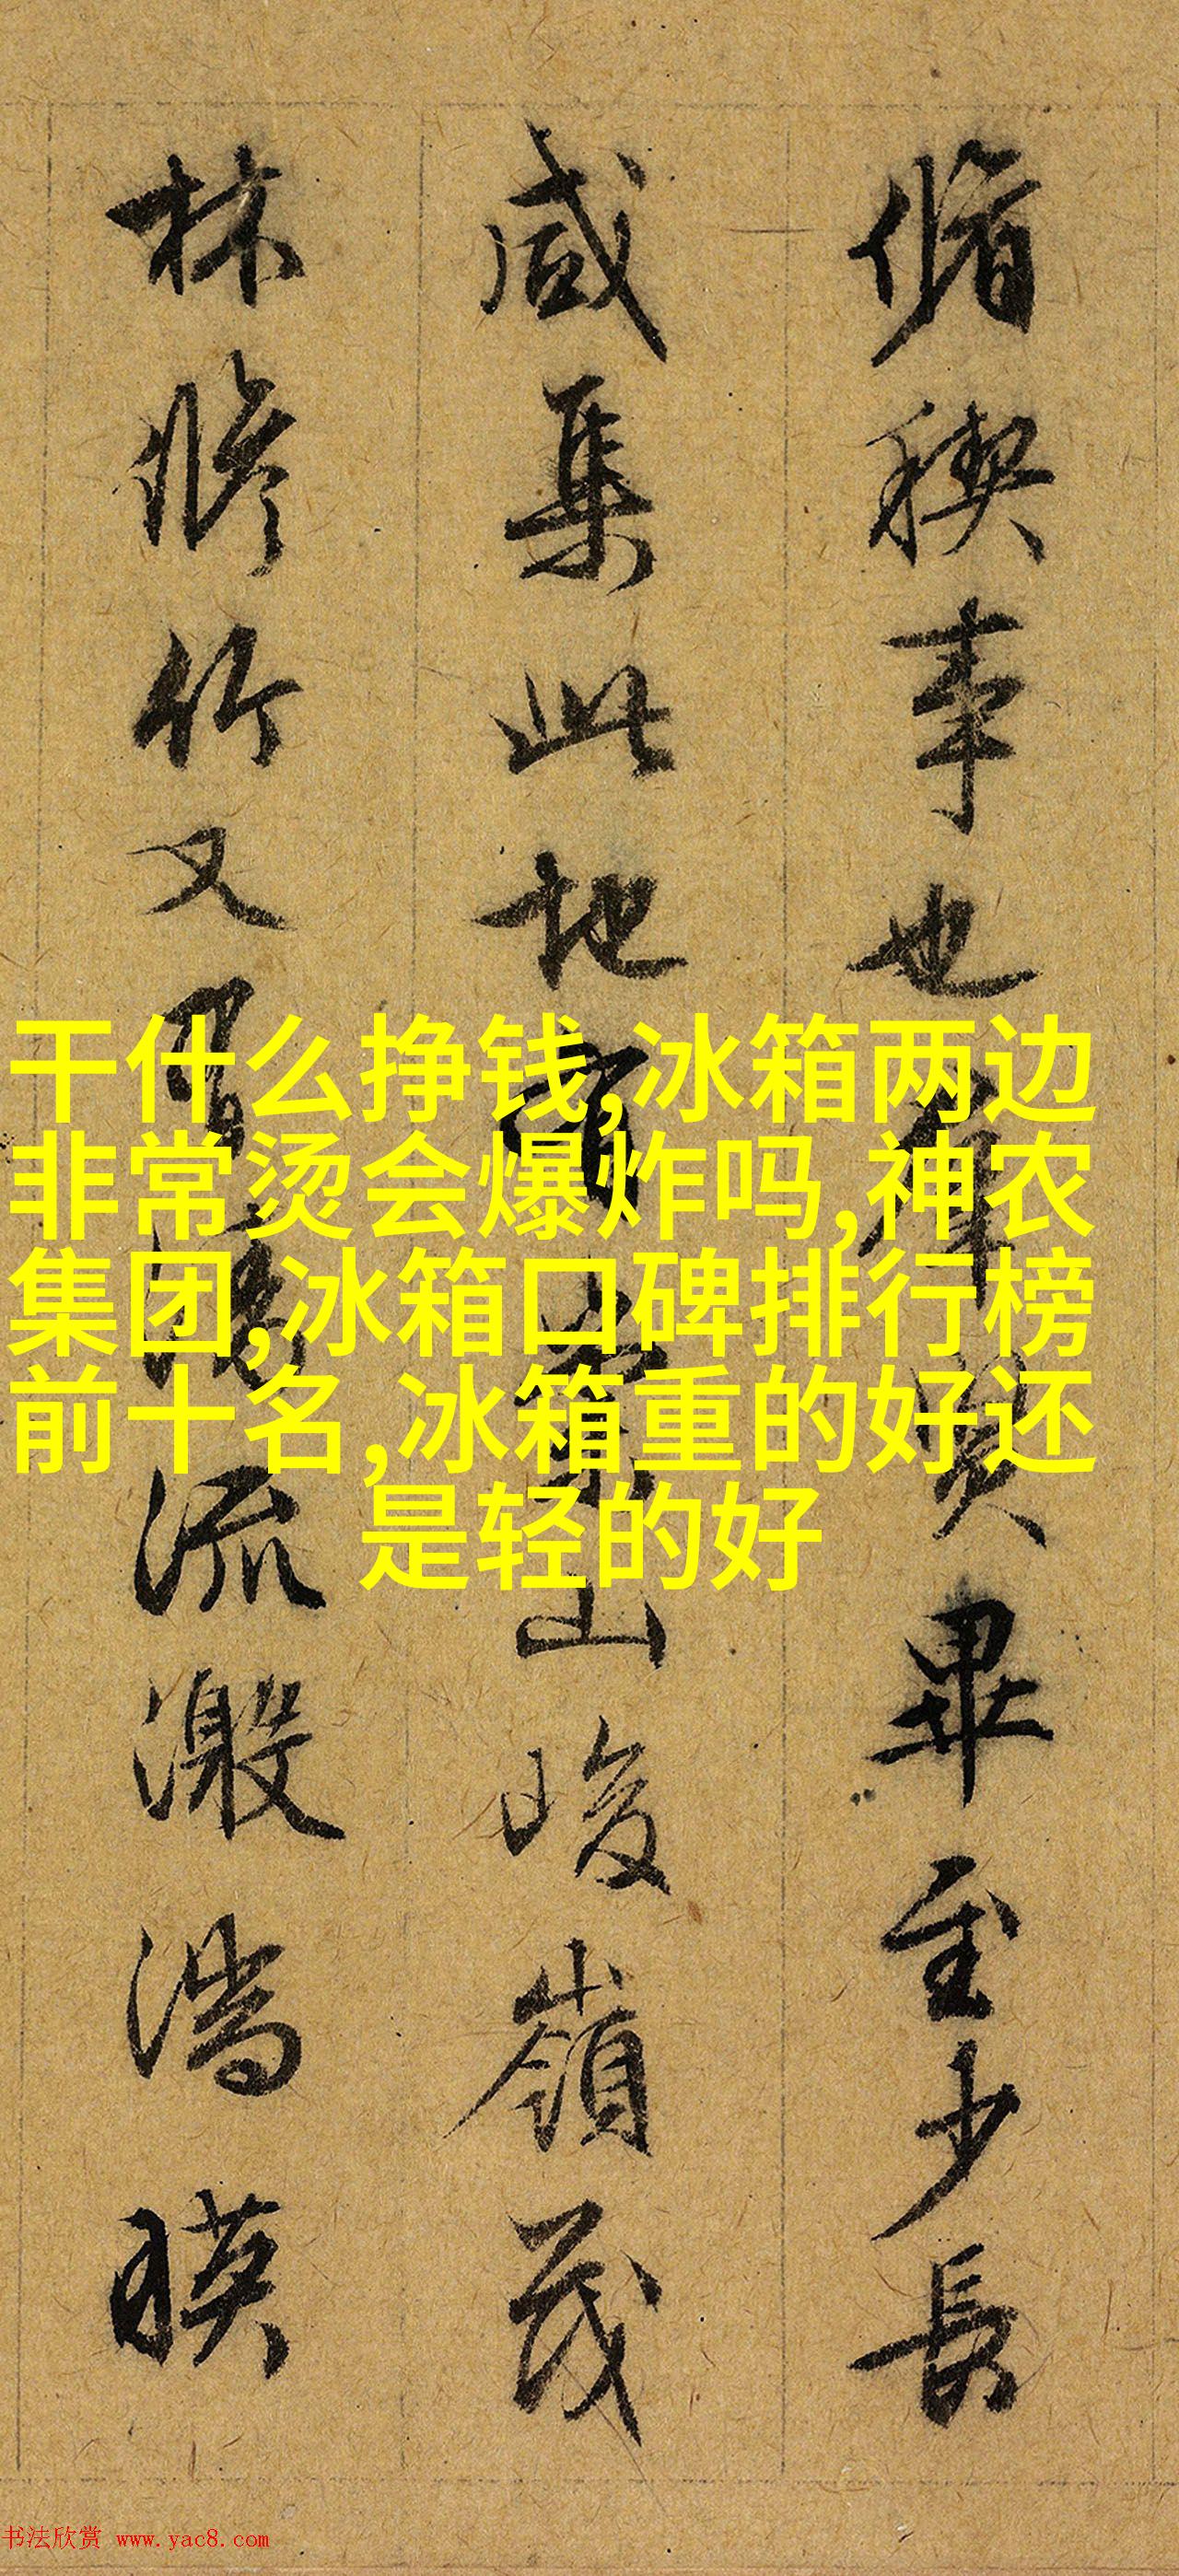 脩稧事也羣賢畢至少長
咸集此地有崇山峻領茂
林脩竹又有清流激湍暎
干什么挣钱,冰箱两边
非常烫会爆炸吗,神农
集团,冰箱口碑排行榜
前十名,冰箱重的好还
是轻的好
书法欣赏 www.yac8.com